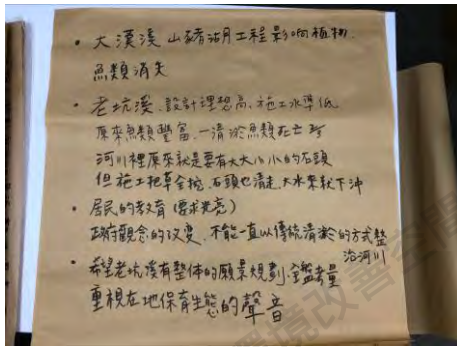 • 大漢溪 山豬湖工程影响植物.
魚類消失
• 老坑溪.設計理想高、施工水準低
原來魚類豐富,一清淤魚類死亡
河川裡原來就是要有大大小小的石頭
但施工把草全挖.石頭也清走.大水來就下沖
• 居民的教育(要求光亮)
政府觀念的改變.不能一直以傳統清淤的方式整
治河川
• 希望老坑溪有整体的願景規劃.
重視在地保育生態的聲音
環境改善空間